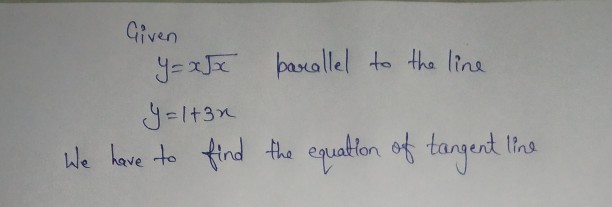 Given
y=x√x parallel to the line
y=1+3x
We have to find the equation of tangent line